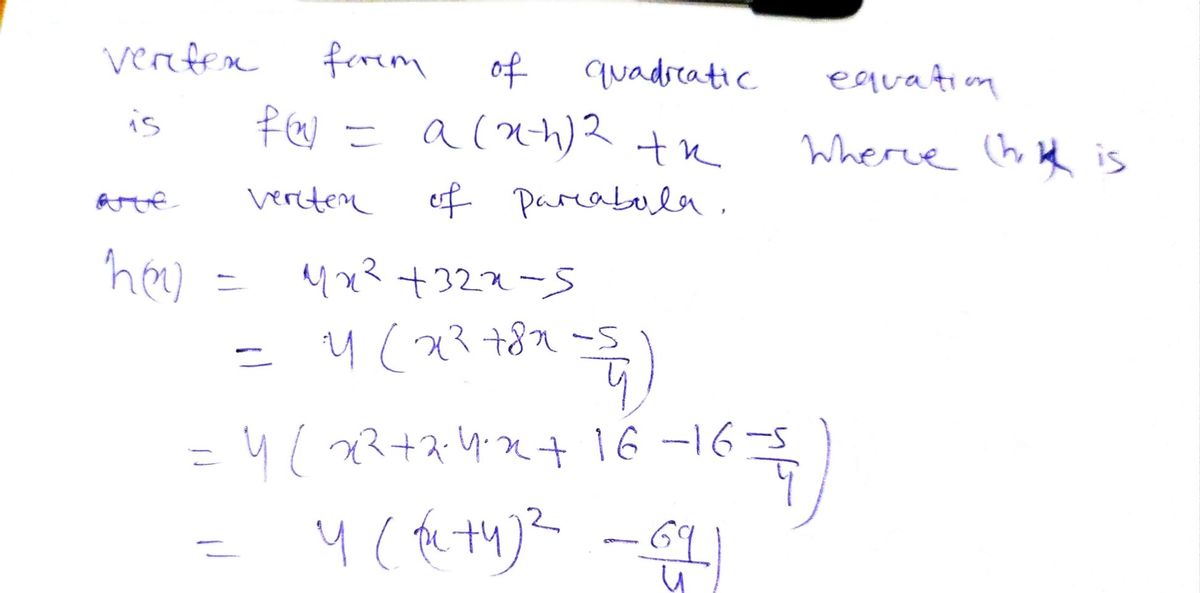 vertex form of quadratic equation
is f(x) = a(x-h)2 + x where (h, k) is
are vertex of parabola.
h(x) = 4x² + 32x - 5
= 4(x² + 8x - 5/4)
= 4(x² + 2·4·x + 16 - 16 - 5/4)
= 4((x+4)² - 69/4)